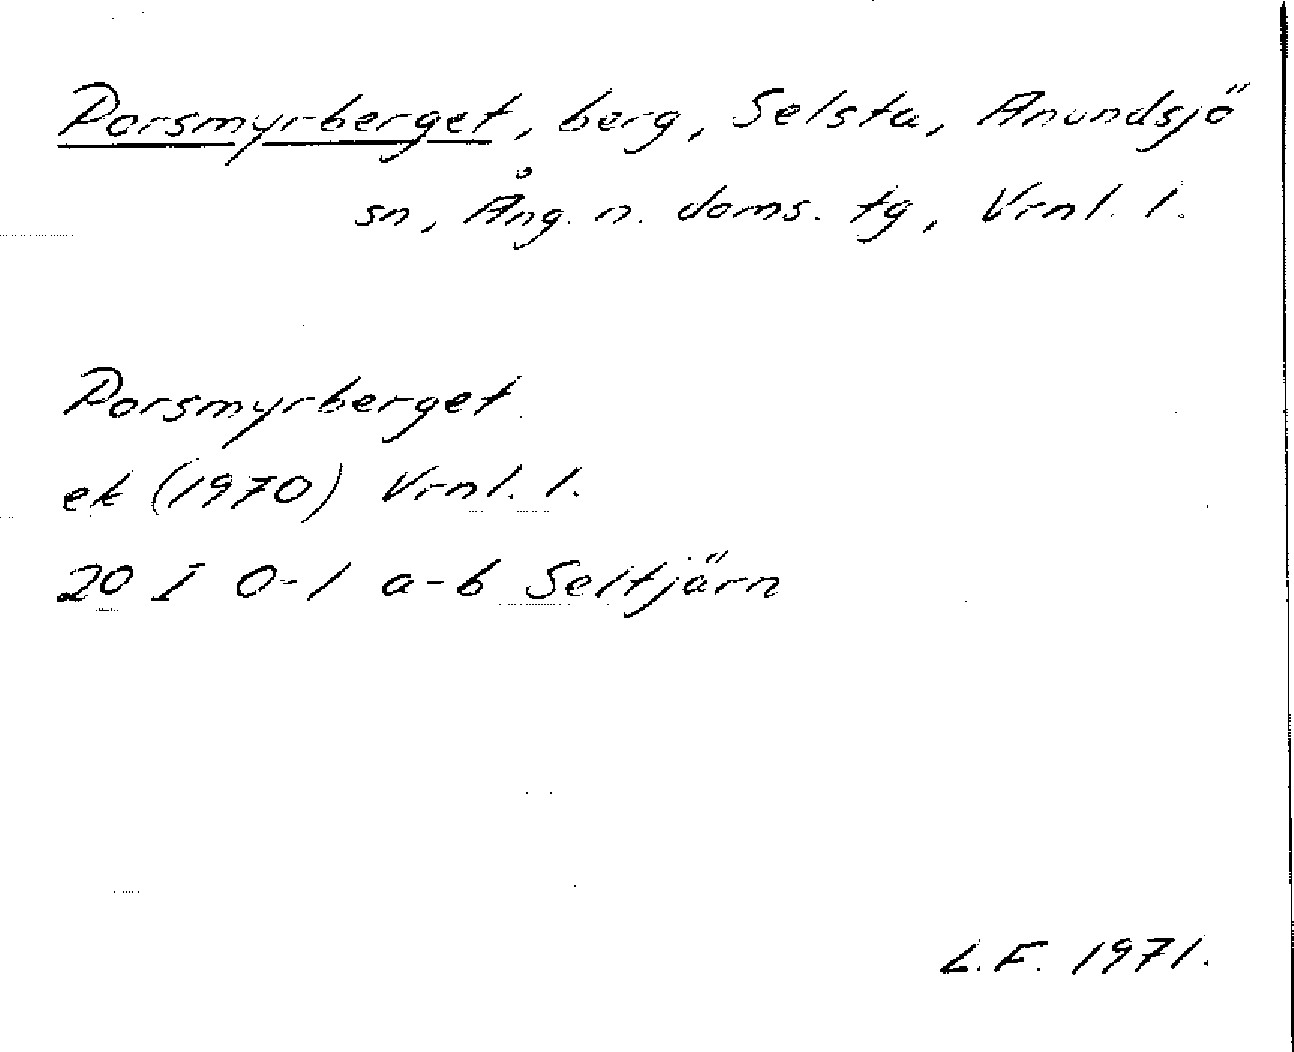 Porsmyrberget, berg, Selsta, Anundsjö
sn, Ång. n. doms. tg, Vrnl. l.
Porsmyrberget
ek (1970) Vrnl. l.
20 I 0-1 a-b Seltjärn
L.F. 1971.